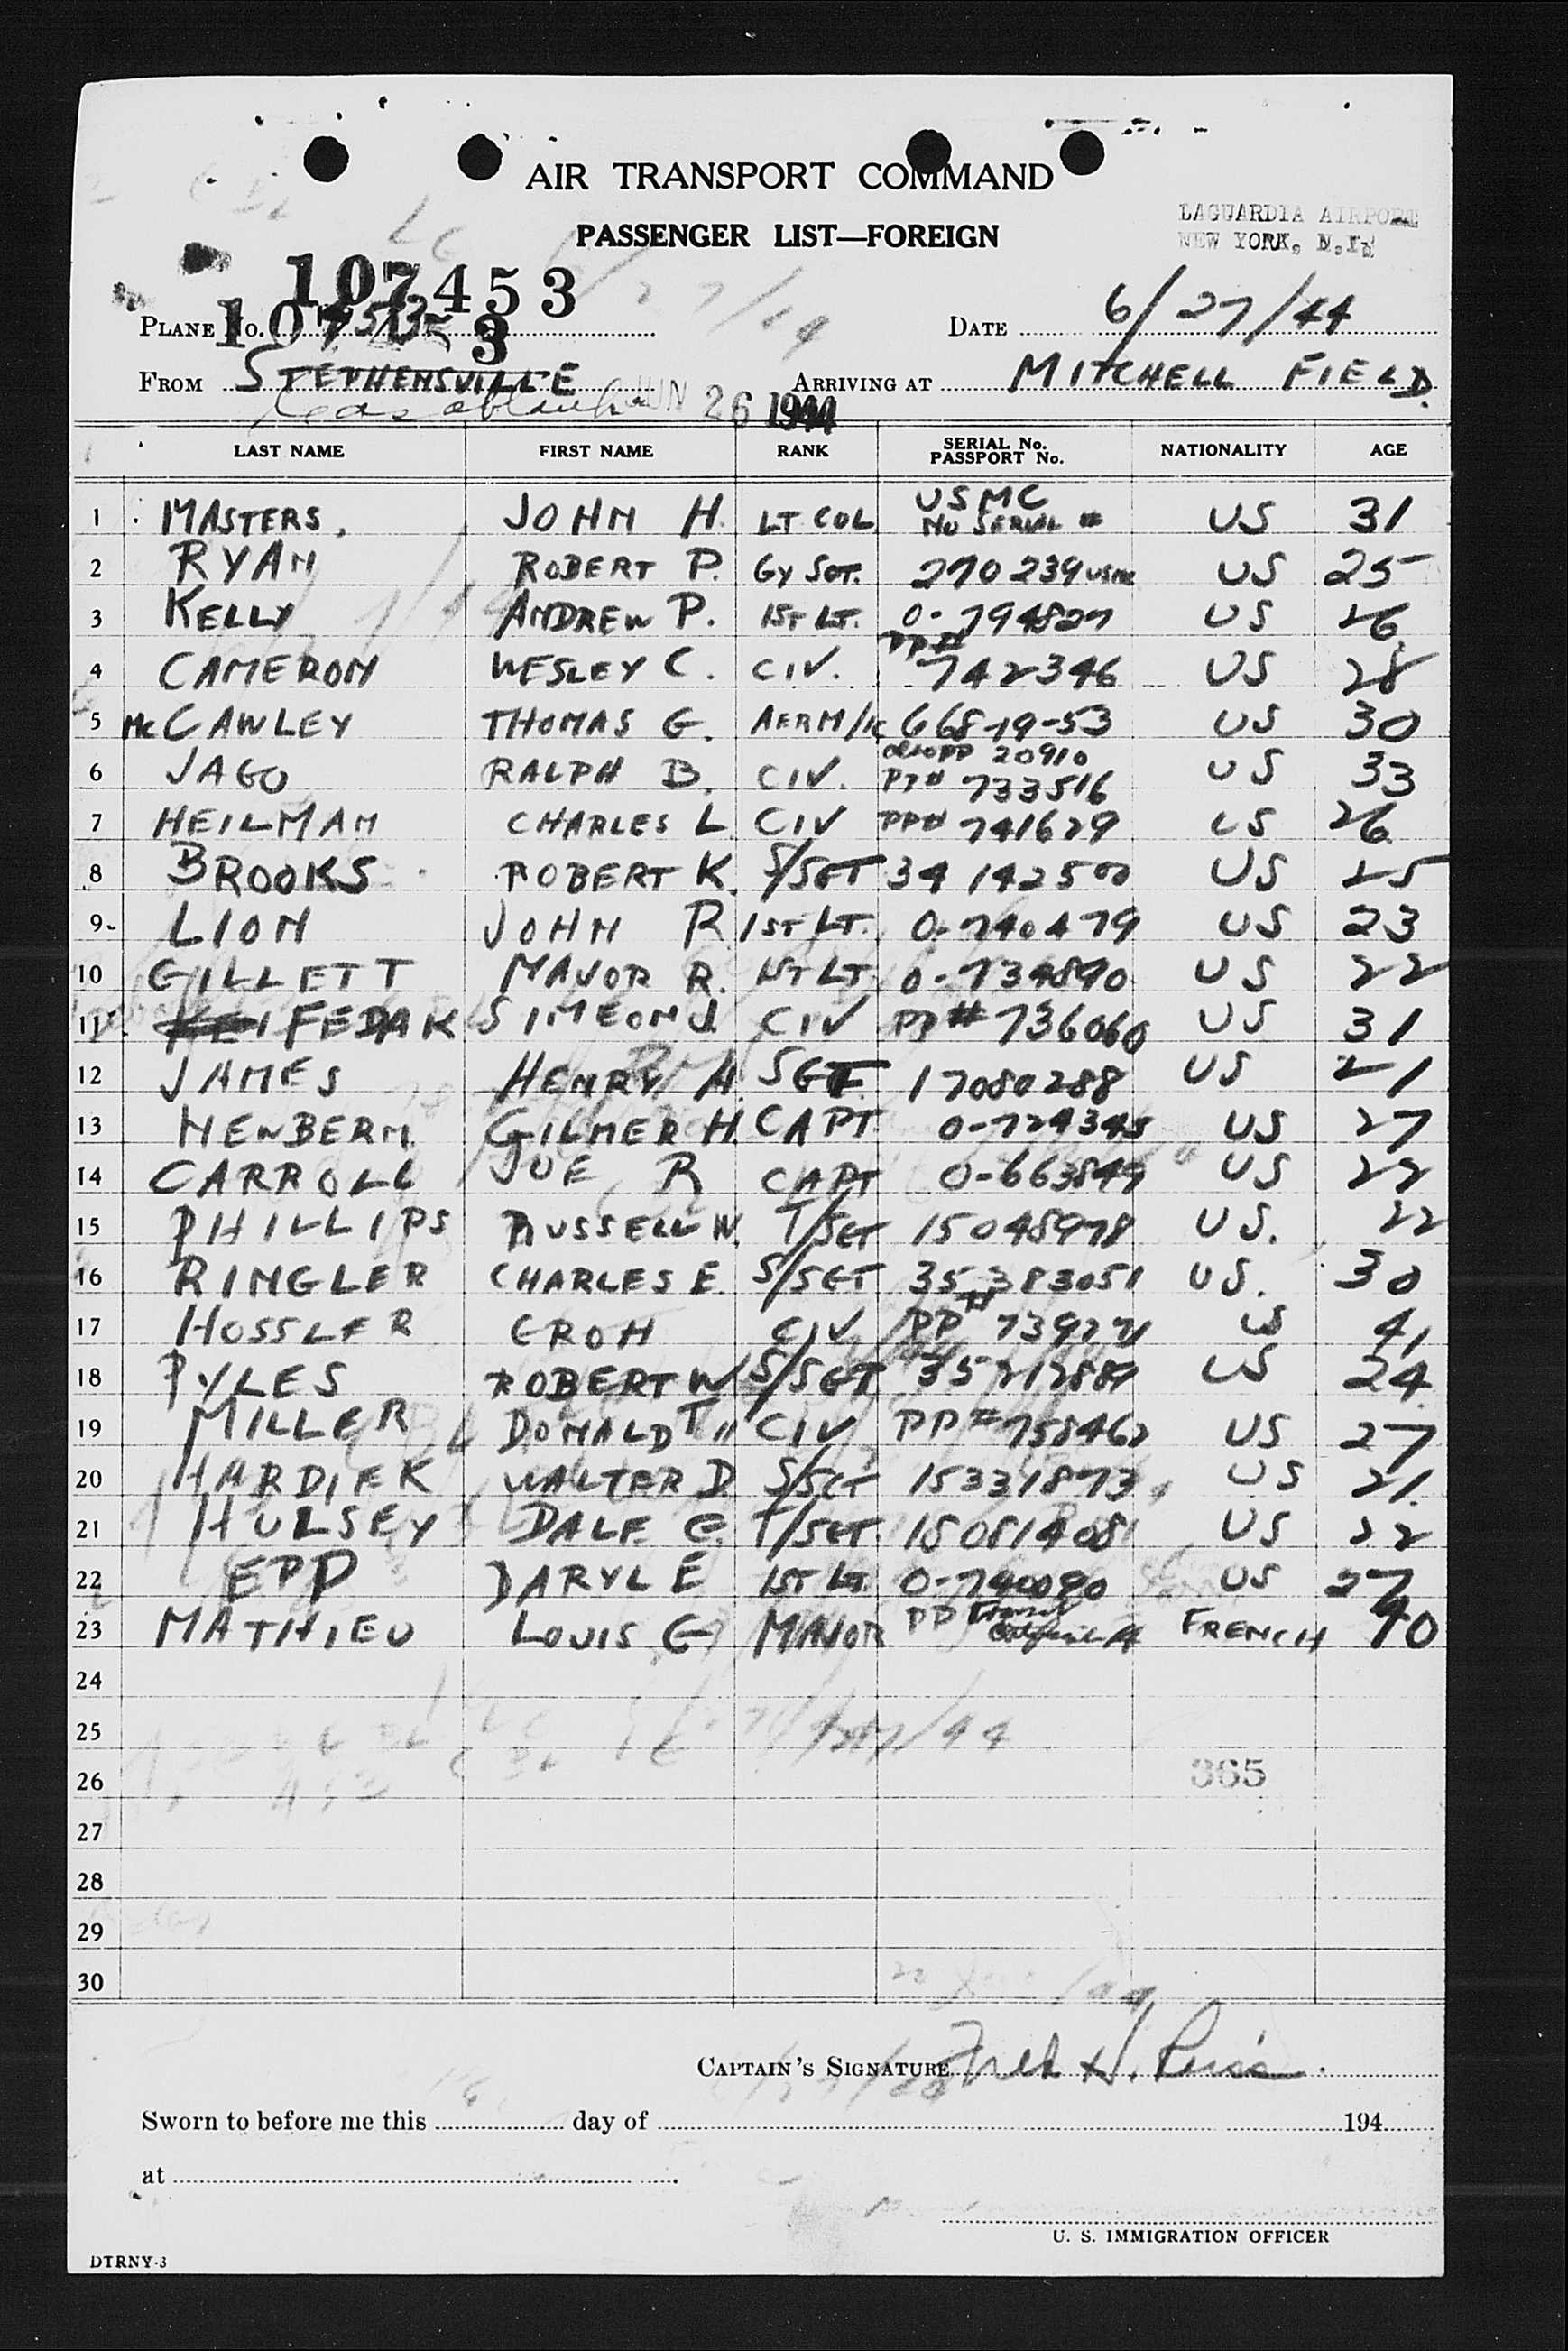 AIR TRANSPORT COMMAND
PASSENGER LIST—FOREIGN
LAGUARDIA AIRPORT
NEW YORK, N.Y.
107453
PLANE No.
DATE 6/27/44
FROM STEPHENSVILLE
ARRIVING AT MITCHELL FIELD.
Casablanca JUN 26 1944
LAST NAME FIRST NAME RANK SERIAL No. PASSPORT No. NATIONALITY AGE
1 MASTERS, JOHN H. LT COL USMC NO SERIAL # US 31
2 RYAN ROBERT P. GY SGT. 270239 USMC US 25
3 KELLY ANDREW P. 1ST LT. 0-794827 US 26
4 CAMERON WESLEY C. CIV. PP# 742346 US 28
5 McCAWLEY THOMAS G. AERM/1C 668-19-53 US 30
6 JAGO RALPH B. CIV. also PP 20910 PP# 733516 US 33
7 HEILMAN CHARLES L. CIV PP# 741629 US 26
8 BROOKS ROBERT K. S/SGT 34142500 US 25
9 LION JOHN R 1ST LT. 0-740479 US 23
10 GILLETT MAJOR R. 1ST LT. 0-734890 US 22
11 FEDAK SIMEON J. CIV PP# 736060 US 31
12 JAMES HENRY H. SGT 17080288 US 21
13 NEWBERN GILMER H. CAPT 0-724345 US 27
14 CARROLL JOE R CAPT 0-663849 US 22
15 PHILLIPS RUSSELL W. T/SGT 15048978 US. 22
16 RINGLER CHARLES E. S/SGT 35383051 US. 30
17 HOSSLER EROH CIV PP# US 41
18 PYLES ROBERT W S/SGT 35212889 US 24
19 MILLER DONALD T. CIV PP# 758462 US 27
20 HARDIEK WALTER D. S/SGT 15331873 US 21
21 HULSEY DALE G. T/SGT. 18081408 US 22
22 EPP DARYL E 1ST LT. 0-740090 US 27
23 MATHIEU LOUIS G MAJOR PP FRENCH 40
24
25
26 365
27
28
29
30
CAPTAIN'S SIGNATURE Fred H.
Sworn to before me this day of 194
at
U. S. IMMIGRATION OFFICER
DTRNY-3